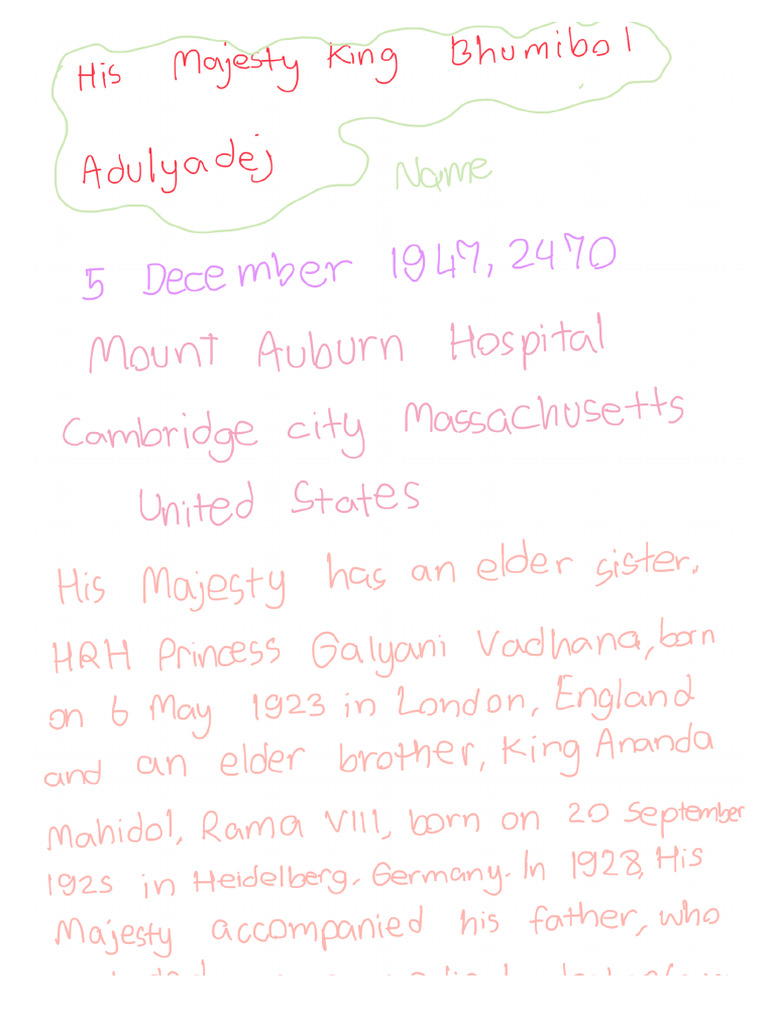 His Majesty King Bhumibol
Adulyadej
Name
5 December 1947, 2470
Mount Auburn Hospital
Cambridge city Massachusetts
United States
His Majesty has an elder sister.
HRH Princess Galyani Vadhana, born
on 6 May 1923 in London, England
and an elder brother, King Ananda
Mahidol, Rama VIII, born on 20 September
1925 in Heidelberg. Germany. In 1928, His
Majesty accompanied his father, who